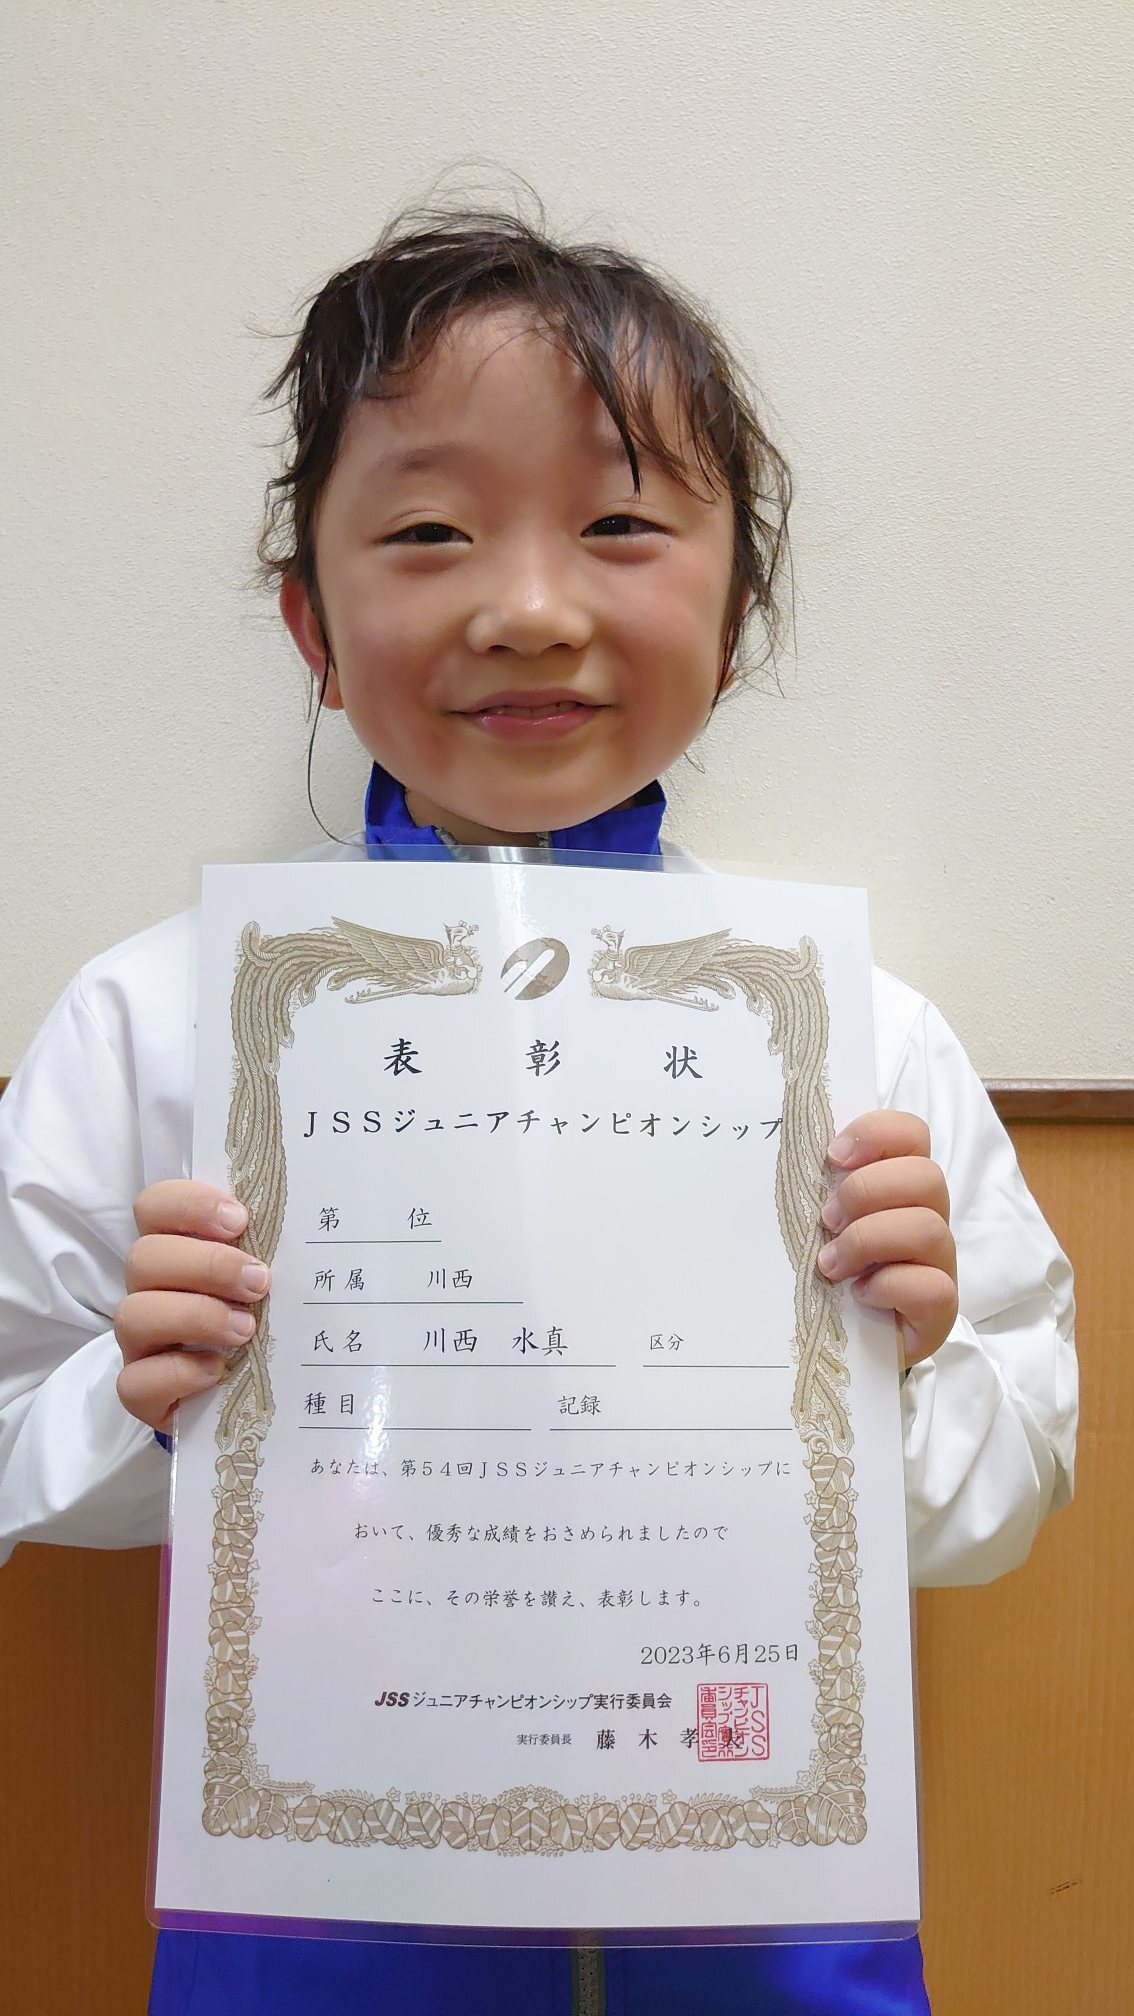 表彰状
JSSジュニアチャンピオンシップ
第 位
所属 川西
氏名 川西 水真 区分
種目 記録
あなたは、第54回JSSジュニアチャンピオンシップに
おいて、優秀な成績をおさめられましたので
ここに、その栄誉を讃え、表彰します。
2023年6月25日
JSSジュニアチャンピオンシップ実行委員会
実行委員長 藤木孝